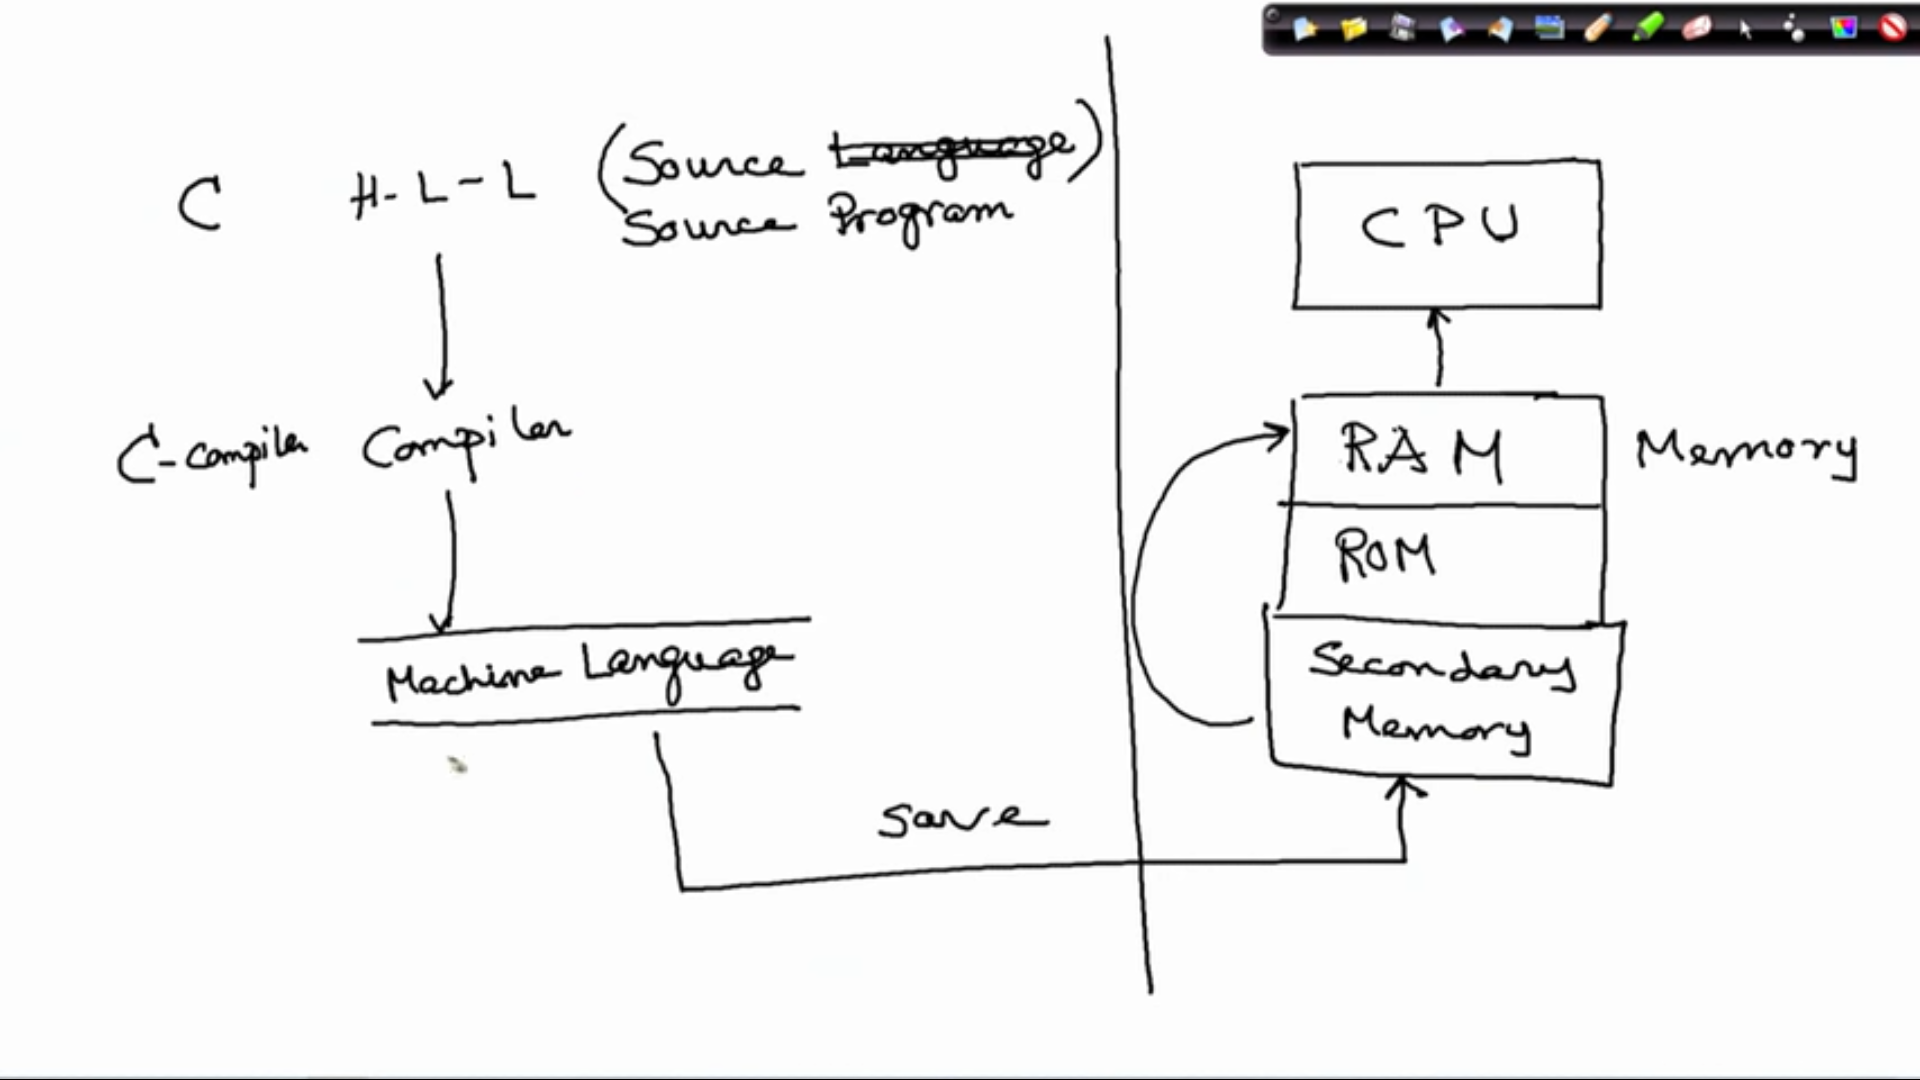 C H-L-L (Source Language)
Source Program
C-compiler Compiler
Machine Language
save
CPU
RAM Memory
ROM
Secondary
Memory